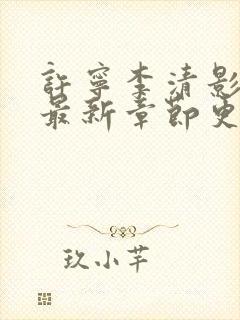 許寧李清影
最新章節更
玖小芊